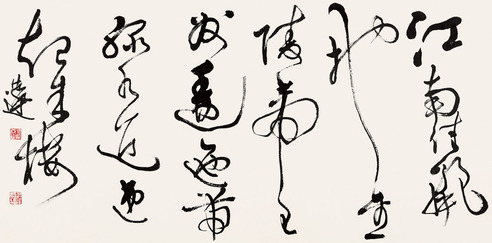 江南佳麗
地金
陵帝王
州逶迤帶
綠水迢遞
起朱樓